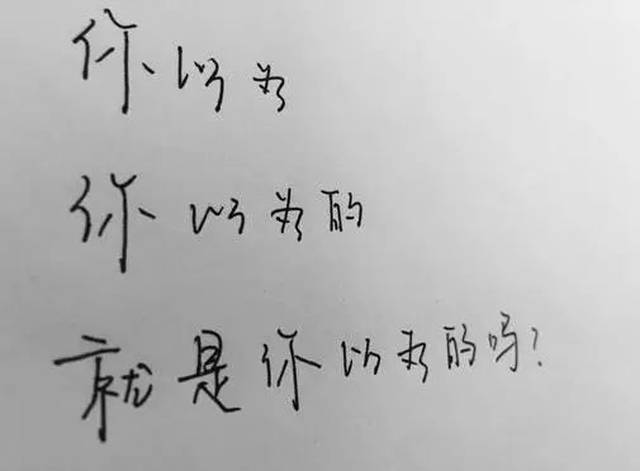 你以为
你以为的
就是你以为的吗?